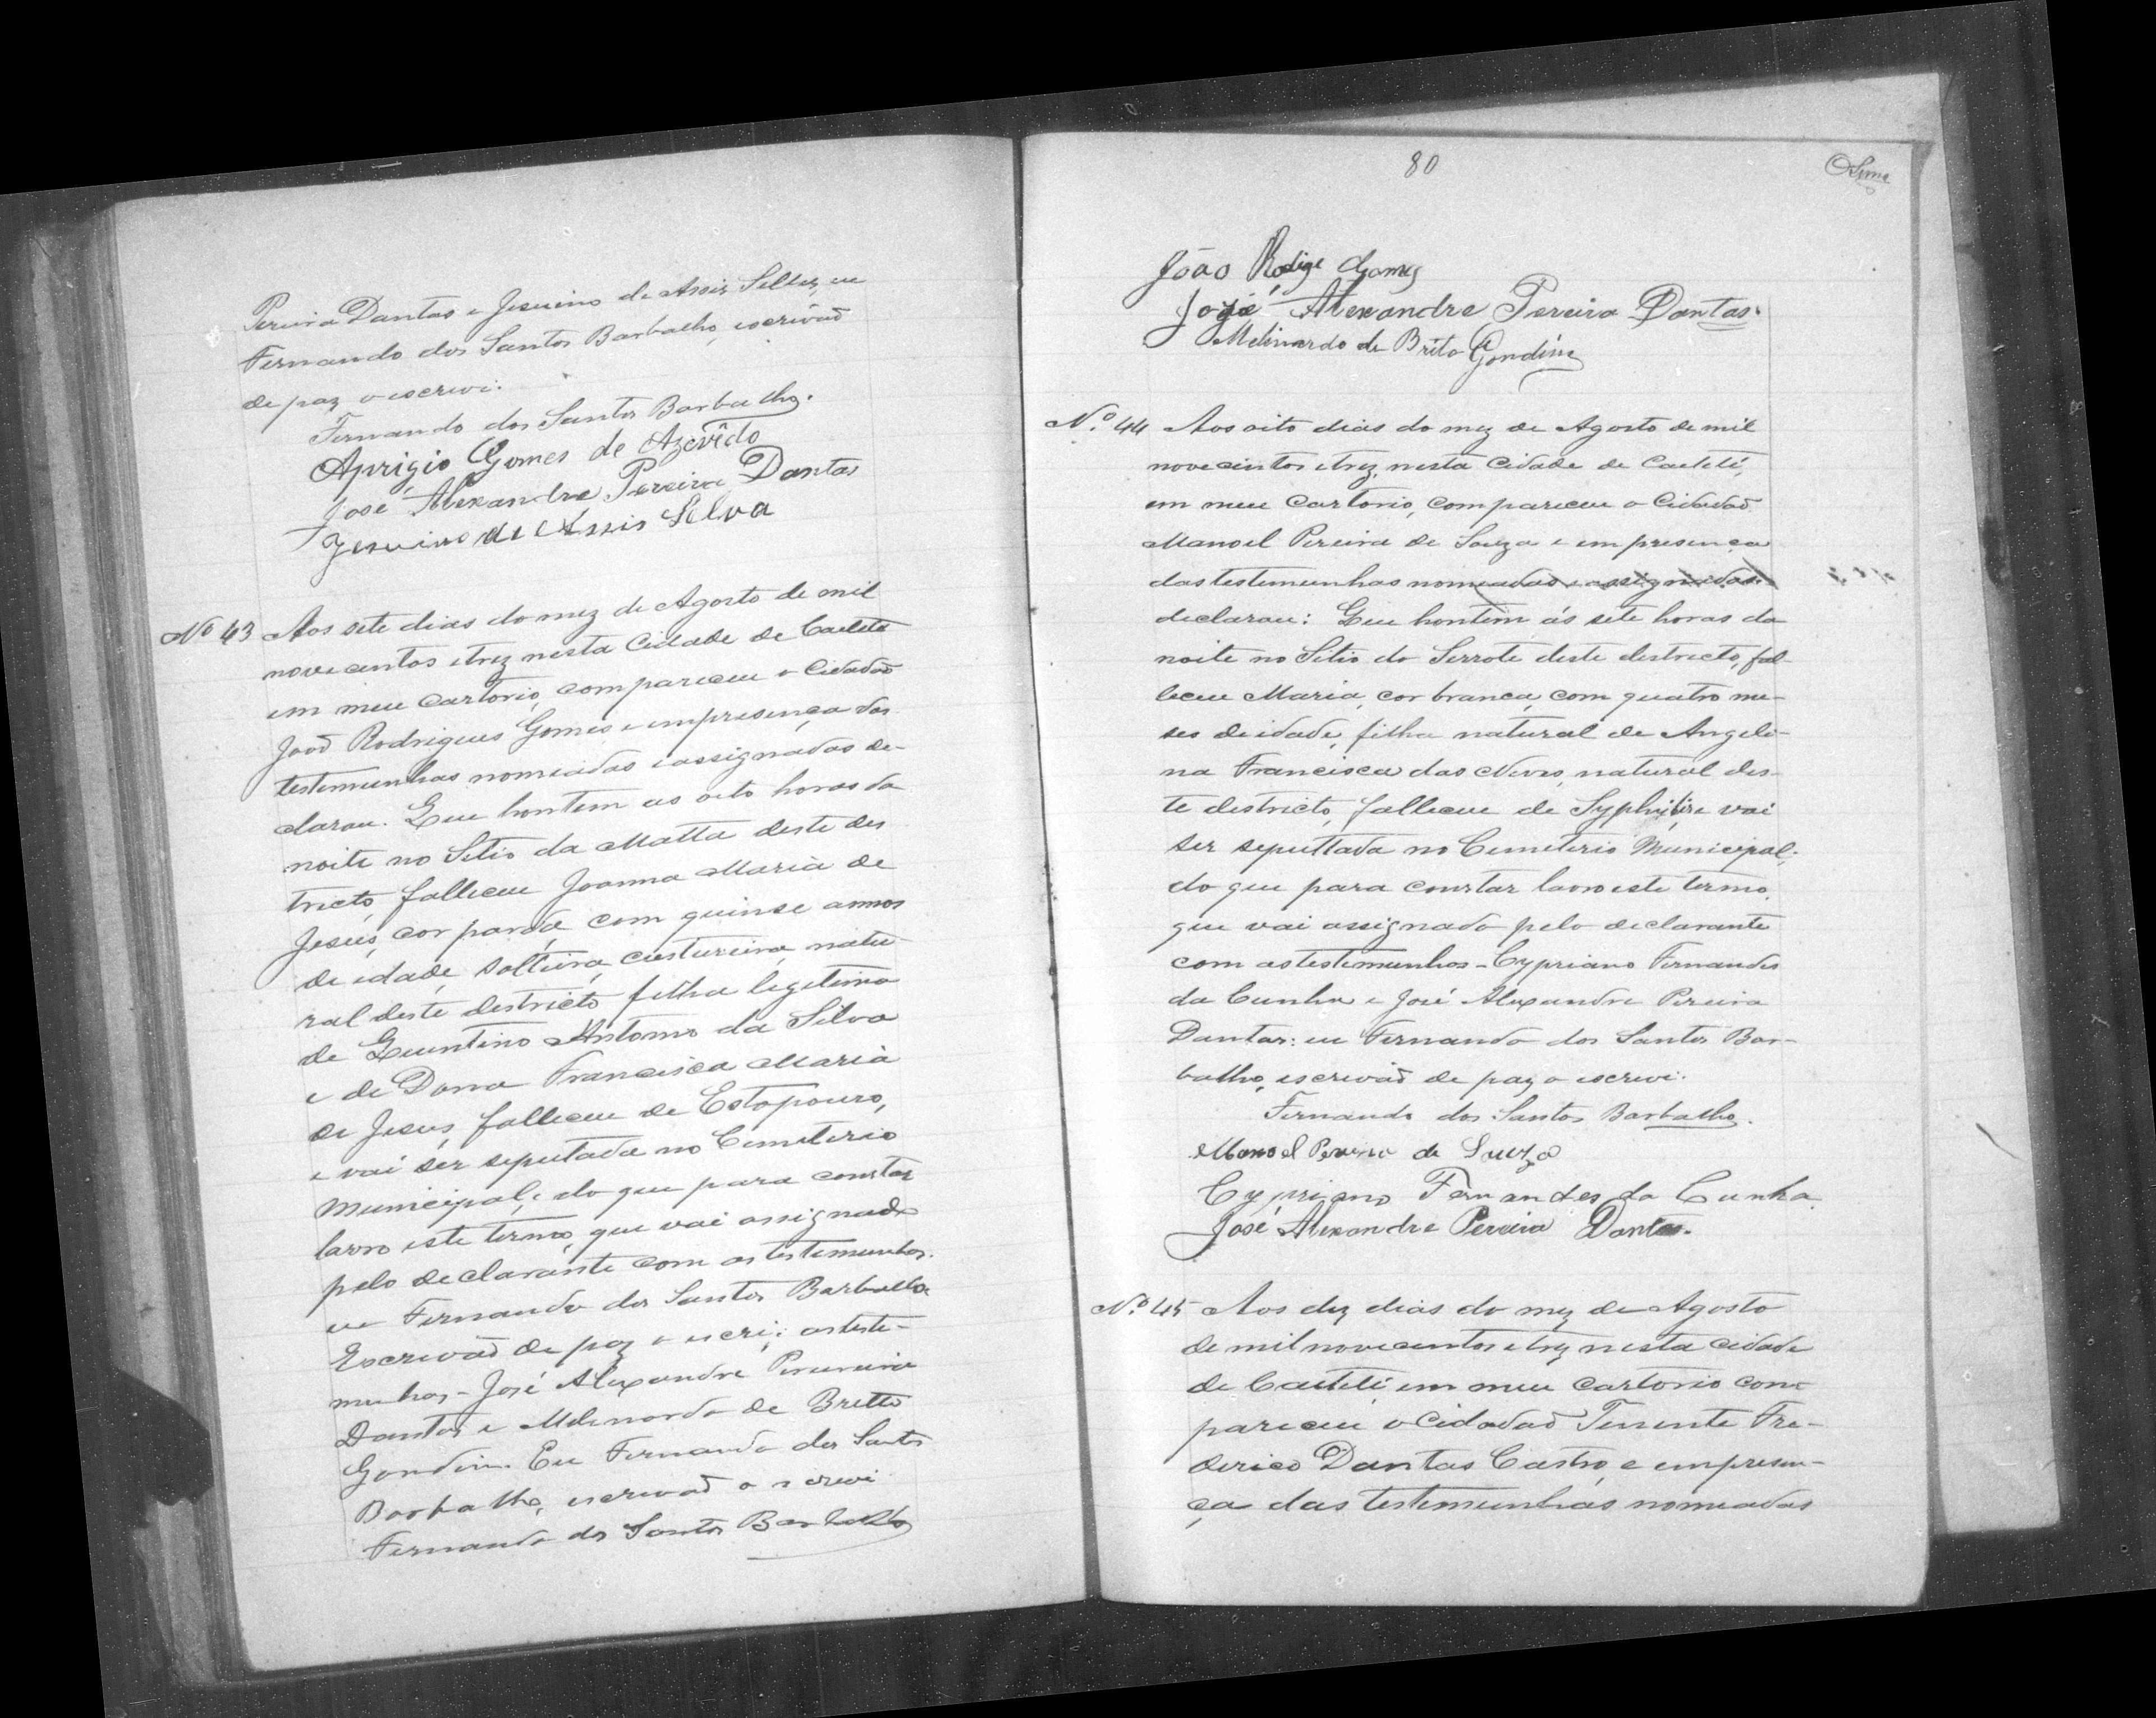 Pereira Dantas e Jesuino de Assis Selva, eu
Fernando dos Santos Barbalho, escrivaõ
de paz o escrevi.
Fernando dos Santos Barbalho.
Aprigio Gomes de Azevêdo
José Alexandre Pereira Dantas
Jesuino de Assis Selva
Nº 43 Aos sete dias do mez de Agosto de mil
novecentos e trez nesta Cidade de Caeteté
em meu Cartorio, compareceu o Cidadaõ
Joaõ Rodrigues Gomes e em presença das
testemunhas nomeadas e assignadas de-
clarou. Que hontem as oito horas da
noite no Sitio da Matta deste des
tricto, falleceu Joanna Maria de
Jesus, cor parda, com quinse annos
de idade, solteira, custureira, natu-
ral deste destricto filha legitima
de Quintino Antonio da Silva
e de Dona Francisca Maria
de Jesus, falleceu de Estopouro,
e vai ser seputada no Cemiterio
Municipal; do que para constar
lavro este termo, que vai assignado
pelo declarante com as testemunhas.
eu Fernando dos Santos Barbalho
Escrivaõ de paz o escri; as teste-
munhas - José Alexandre Perureira
Dantas e Melinardo de Britto
Gondim. Eu Fernando dos Santos
Barbalho, escrivaõ o escrevi
Fernando dos Santos Barbalho
80
Lima
João Rodige Gomes
José Alexandre Pereira Dantas.
Melinardo de Brito Gondim
Nº 44 Aos oito dias do mez de Agosto de mil
novecentos e trez, nesta Cidade de Caeteté,
em meu Cartorio, compareceu o Cidadaõ
Manoel Pereira de Souza e em presença
das testemunhas nomeadas e assignadas
declarou: Que hontem ás sete horas da
noite no Sitio do Serrote deste destricto, fal-
leceu Maria, cor branca, com quatro me-
ses de idade, filha natural de Angeli-
na Francisca das Neves, natural des-
te destricto, falleceu de Syphilis e vai
ser seputtada no Cemeterio Municipal;
do que para constar lavro este termo,
que vai assignado pelo declarante
com as testemunhas - Cypriano Fernandes
da Cunha e José Alexandre Pereira
Dantas: eu Fernando dos Santos Bar-
balho, escrivaõ de paz o escrevi.
Fernando dos Santos Barbalho.
Manoel Pereira de Souza
Cypriano Fernandes da Cunha
José Alexandre Pereira Dantas.
Nº 45 Aos dez dias do mez de Agosto
de mil novecentos e trez nesta cidade
de Caeteté em meu Cartorio com
pareceu o Cidadaõ Tenente Fre-
derico Dantas Castro, e em presen-
ça das testemunhas nomeadas